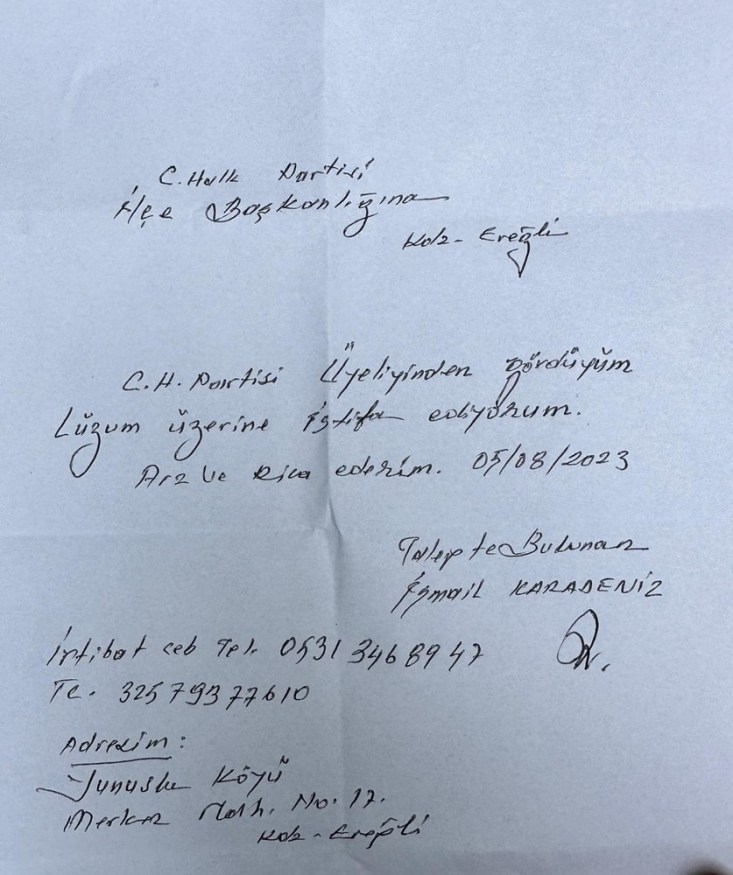 C. Halk Partisi
İlçe Başkanlığına
Kdz - Ereğli
C.H. Partisi Üyeliyinden gördüyüm
Lüzum üzerine istifa ediyorum.
Arz ve Rica ederim. 05/08/2023
Talepte Bulunan
İsmail KARADENİZ
İrtibat ceb Tel. 0531 346 89 47
Tc. 32579377610
Adresim:
Köyü
Merkez Mah. No. 17.
Kdz - Ereğli